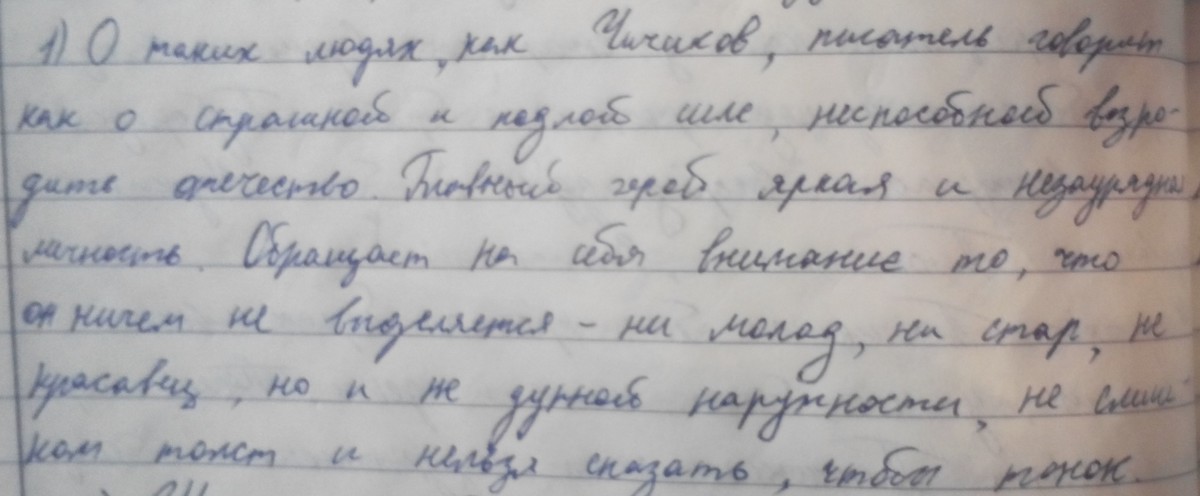 1) О таких людях, как Чичиков, писатель говорит
как о страшной и подлой силе, неспособной возро-
дить отечество. Главный герой яркая и незаурядна
личность. Обращает на себя внимание то, что
он ничем не выделяется - ни молод, ни стар, не
красавец, но и не дурной наружности, не слиш-
ком толст и нельзя сказать, чтобы тонок.